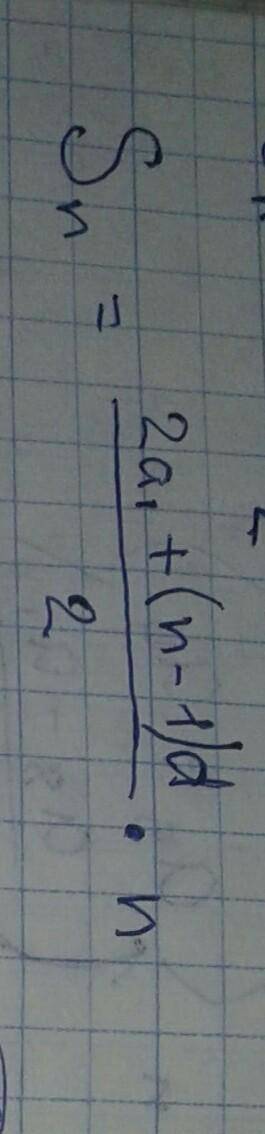 Sₙ = (2a₁ + (n - 1)d) / 2 · n